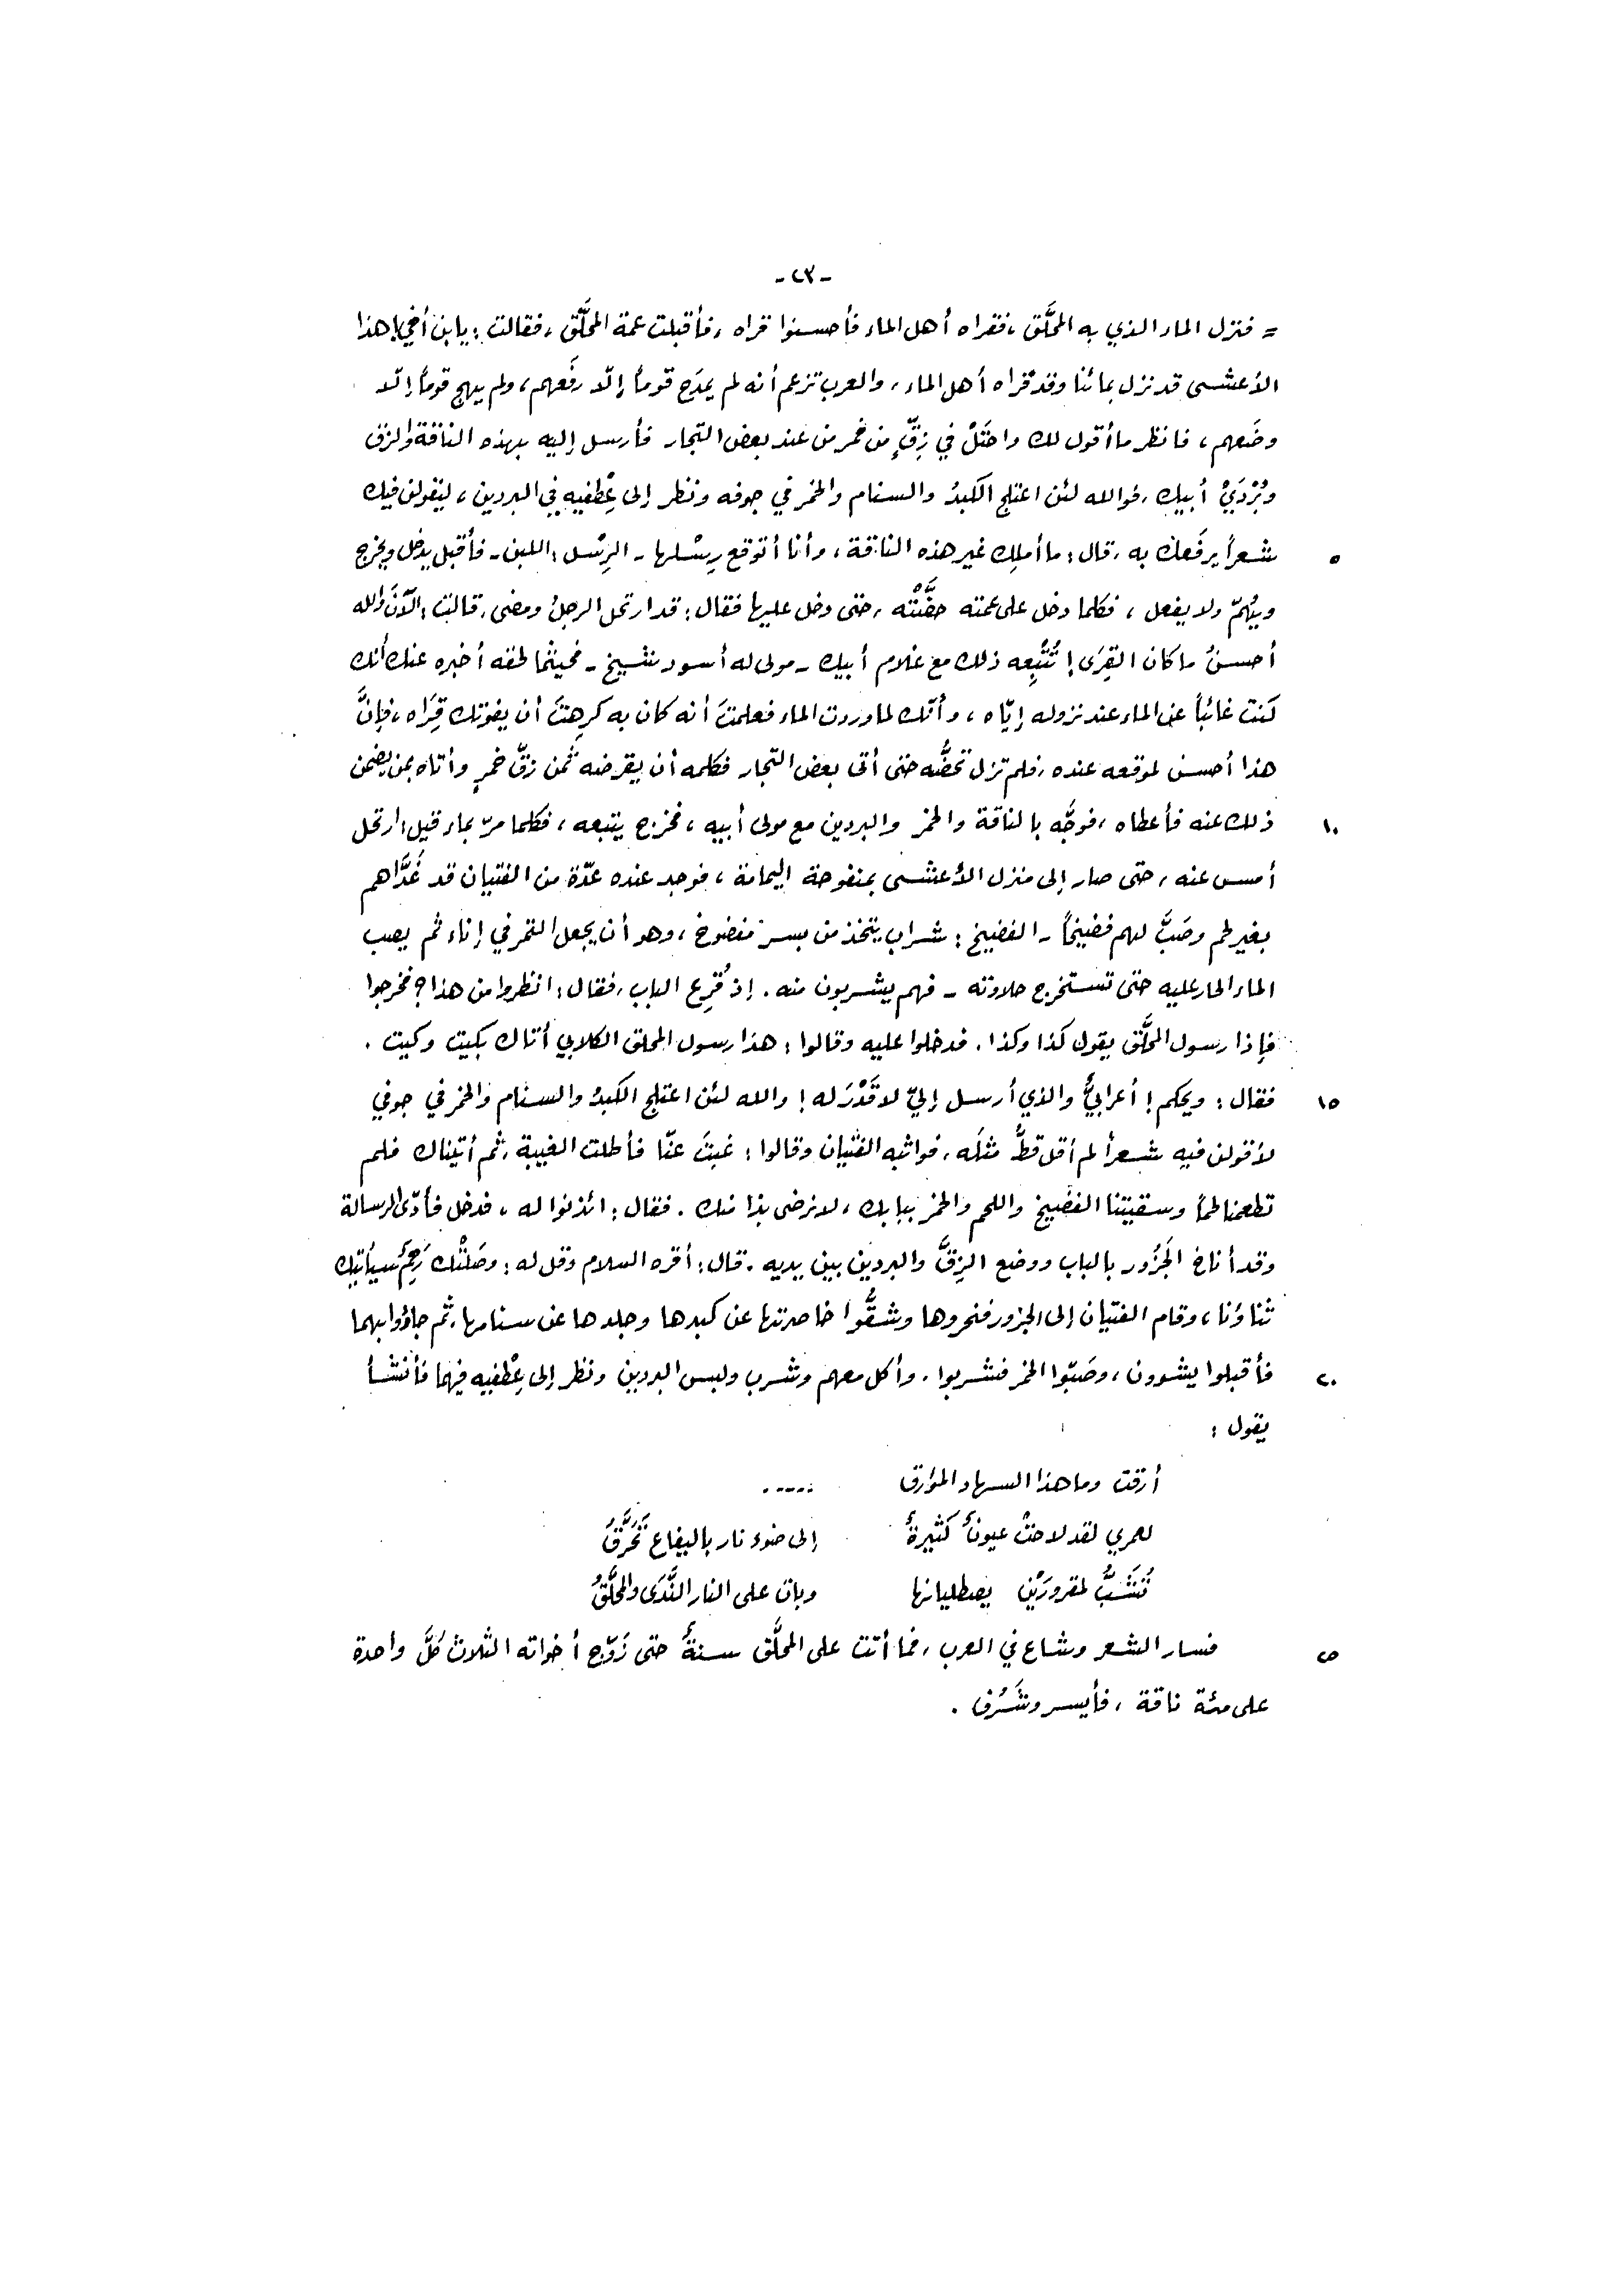 - ٢٣ -
= فنزل الماء الذي به المحلَّق، فقراه أهل الماء فأحسنوا قراه، فأقبلت عمة المحلَّق، فقالت: يا بن أخي! هذا
الأعشى قد نزل بمائنا وقد قراه أهل الماء، والعرب تزعم أنه لم يمدَح قوماً إلّا رفَعهم، ولم يهج قوماً إلّا
وضَعهم، فانظر ما أقول لك واحتَلْ في زِقٍّ من خمر من عند بعض التجار فأرسل إليه بهذه الناقة والزق
وبُرْدَيْ أبيك، فوالله لئن اعتلج الكبدُ والسنام والخمر في جوفه ونظر إلى عِطْفيه في البردين، ليقولن فيك
٥ شعراً يرفَعك به، قال: ما أملِك غير هذه الناقة، وأنا أتوقع رِسْلها - الرِسْل: اللبن - فأقبل يدخل ويخرج
ويَهُمّ ولا يفعل، فكلما دخل على عمته حضَّتْه، حتى دخل عليها فقال: قد ارتحل الرجلُ ومضى، قالت: الآنَ والله
أحسنُ ما كان القِرَى! تُتْبِعه ذلك مع غلام أبيك - مولى له أسود شيخ - فحيثما لحقه أخبره عنك أنك
كنت غائباً عن الماء عند نزوله إيّاه، وأنّك لما وردت الماء فعلمتَ أنه كان به كرِهتَ أن يفوتك قِرَاه، فإنَّ
هذا أحسن لموقعه عنده، فلم تزل تحضُّه حتى أتى بعض التجار فكلمه أن يقرضه ثمن زقّ خمرٍ وأتاه بمن يضمن
١٠ ذلك عنه فأعطاه، فوجَّه بالناقة والخمر والبردين مع مولى أبيه، فخرج يتبعه، فكلما مرّ بماء قيل: ارتحل
أمس عنه، حتى صار إلى منزل الأعشى بمنفوحة اليمامة، فوجد عنده عدّة من الفتيان قد غَدَّاهم
بغير لحم وصَبَّ لهم فضيخاً - الفضيخ: شراب يتخذ من بسر مفضوخ، وهو أن يجعل التمر في إناء ثم يصب
الماء الحار عليه حتى تستخرج حلاوته - فهم يشربون منه. إذ قُرِع الباب، فقال: انظروا من هذا؟ فخرجوا
فإذا رسول المحلَّق يقول كذا وكذا. فدخلوا عليه وقالوا: هذا رسول المحلق الكلابي أتاك بكيت وكيت.
١٥ فقال: ويحكم! أعرابيٌّ والذي أرسل إليّ لا قَدْرَ له! والله لئن اعتلج الكبدُ والسنام والخمر في جوفي
لأقولن فيه شعراً لم أقل قطُّ مثلَه، فواثبه الفتيان وقالوا: غبتَ عنّا فأطلت الغيبة، ثم أتيناك فلم
تطعمنا لحماً وسقيتنا الفضيخ واللحم والخمر ببابك، لا نرضى بذا منك. فقال: ائذنوا له، فدخل فأدّى الرسالة
وقد أناخ الجَزُور بالباب ووضع الزِقَّ والبردين بين يديه. قال: أقره السلام وقل له: وصَلَتْك رَحِمٌ سيأتيك
ثناؤنا، وقام الفتيان إلى الجزور فنحروها وشقُّوا خاصرتها عن كبدها وجلدها عن سنامها، ثم جاؤوا بهما
٢٠ فأقبلوا يشوون، وصَبّوا الخمر فشربوا. وأكل معهم وشرب ولبس البردين ونظر إلى عِطْفيه فيهما فأنشأ
يقول:
أرقت وما هذا السهاد المؤرق .....
لعمري لقد لاحتْ عيونٌ كثيرةٌ إلى ضوء نار باليفاع تَحَرَّقُ
تُشَبُّ لمقرورَيْن يصطليانها وبات على النار النَّدَى والمحلَّقُ
٢٥ فسار الشعر وشاع في العرب، فما أتت على المحلَّق سنةٌ حتى زوّج أخواته الثلاث كلَّ واحدة
على مئة ناقة، فأيسر وشَرُف.